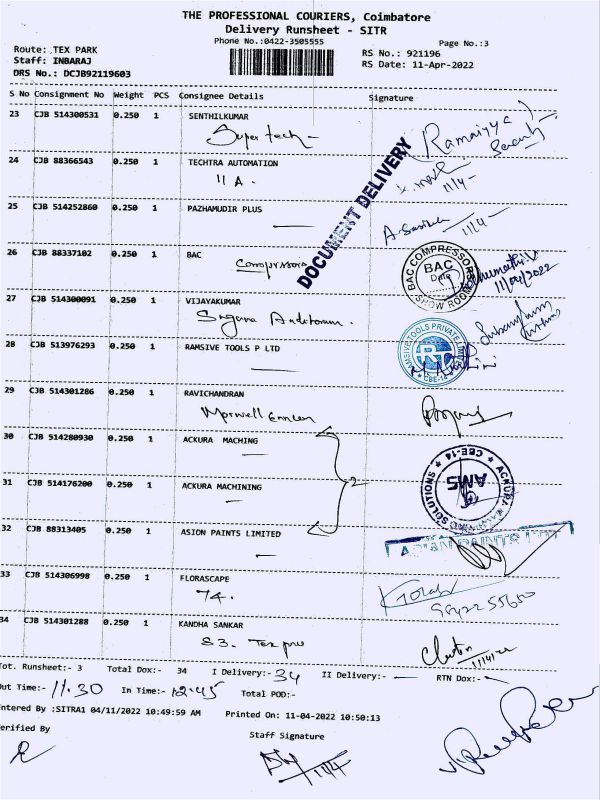 THE PROFESSIONAL COURIERS, Coimbatore
Delivery Runsheet - SITR
Phone No.:0422-3505555
Page No.:3
Route: TEX PARK
Staff: INBARAJ
DRS No.: DCJB92119603
RS No.: 921196
RS Date: 11-Apr-2022
S No Consignment No Weight PCS Consignee Details Signature
23 CJB 514300531 0.250 1 SENTHILKUMAR
Super tech
24 CJB 88366543 0.250 1 TECHTRA AUTOMATION
11 A.
11/4
DOCUMENT DELIVERY
25 CJB 514252860 0.250 1 PAZHAMUDIR PLUS
11/4
26 CJB 88337102 0.250 1 BAC
Compressors
BAC COMPRESSORS
BAC
Date
SHOW ROOM
11/04/2022
27 CJB 514300091 0.250 1 VIJAYAKUMAR
28 CJB 513976293 0.250 1 RAMSIVE TOOLS P LTD
RAMSIVE TOOLS PRIVATE LIMITED
RT
CBE-14
29 CJB 514301286 0.250 1 RAVICHANDRAN
30 CJB 514280930 0.250 1 ACKURA MACHING
31 CJB 514176200 0.250 1 ACKURA MACHINING
2
ACKURA
SOLUTIONS
CBE-14
AMS
32 CJB 88313405 0.250 1 ASION PAINTS LIMITED
33 CJB 514306998 0.250 1 FLORASCAPE
74.
34 CJB 514301288 0.250 1 KANDHA SANKAR
S3.
11/4/22
Tot. Runsheet:- 3 Total Dox:- 34 I Delivery:- 34 II Delivery:- — RTN Dox:- —
Out Time:- 11.30 In Time:- 12.45 Total POD:-
Entered By :SITRA1 04/11/2022 10:49:59 AM Printed On: 11-04-2022 10:50:13
Verified By
Staff Signature
11/4